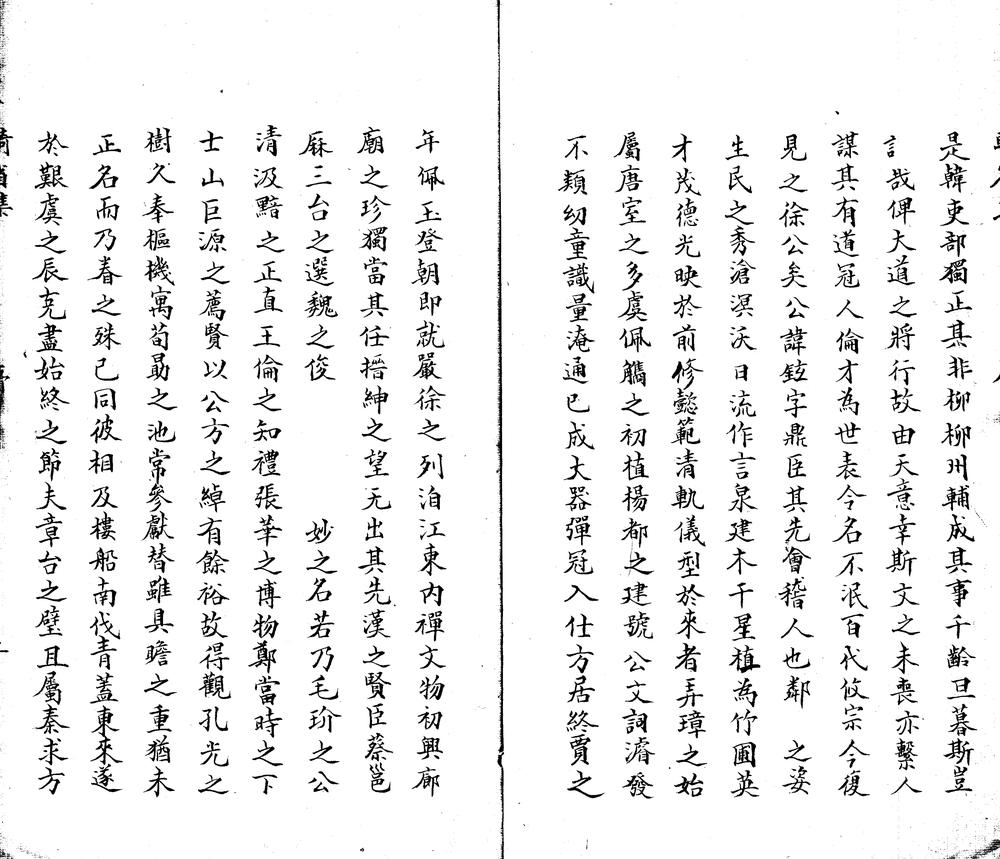 是韓吏部獨正其非柳柳州輔成其事千齡旦暮斯豈
言哉俾大道之將行故由天意幸斯文之未喪亦繫人
謀其有道冠人倫才為世表令名不泯百代攸宗今復
見之徐公矣公諱鉉字鼎臣其先會稽人也鄰 之姿
生民之秀滄溟沃日流作言泉建木干星植為竹圃英
才茂德光映於前修懿範清軌儀型於來者弄璋之始
屬唐室之多虞佩觿之初植楊都之建號公文詞濬發
不類幼童識量淹通已成大器彈冠入仕方居終賈之
年佩玉登朝即就嚴徐之列洎江東內禪文物初興廊
廟之珍獨當其任搢紳之望无出其先漢之賢臣蔡邕
厤三台之選魏之俊 妙之名若乃毛玠之公
清汲黯之正直王倫之知禮張華之博物鄭當時之下
士山巨源之薦賢以公方之綽有餘裕故得觀孔光之
樹久奉樞機寓荀勗之池常參獻替雖具瞻之重猶未
正名而乃眷之殊已同彼相及樓船南伐青蓋東來遂
於艱虞之辰克盡始終之節夫章台之璧且屬秦求方